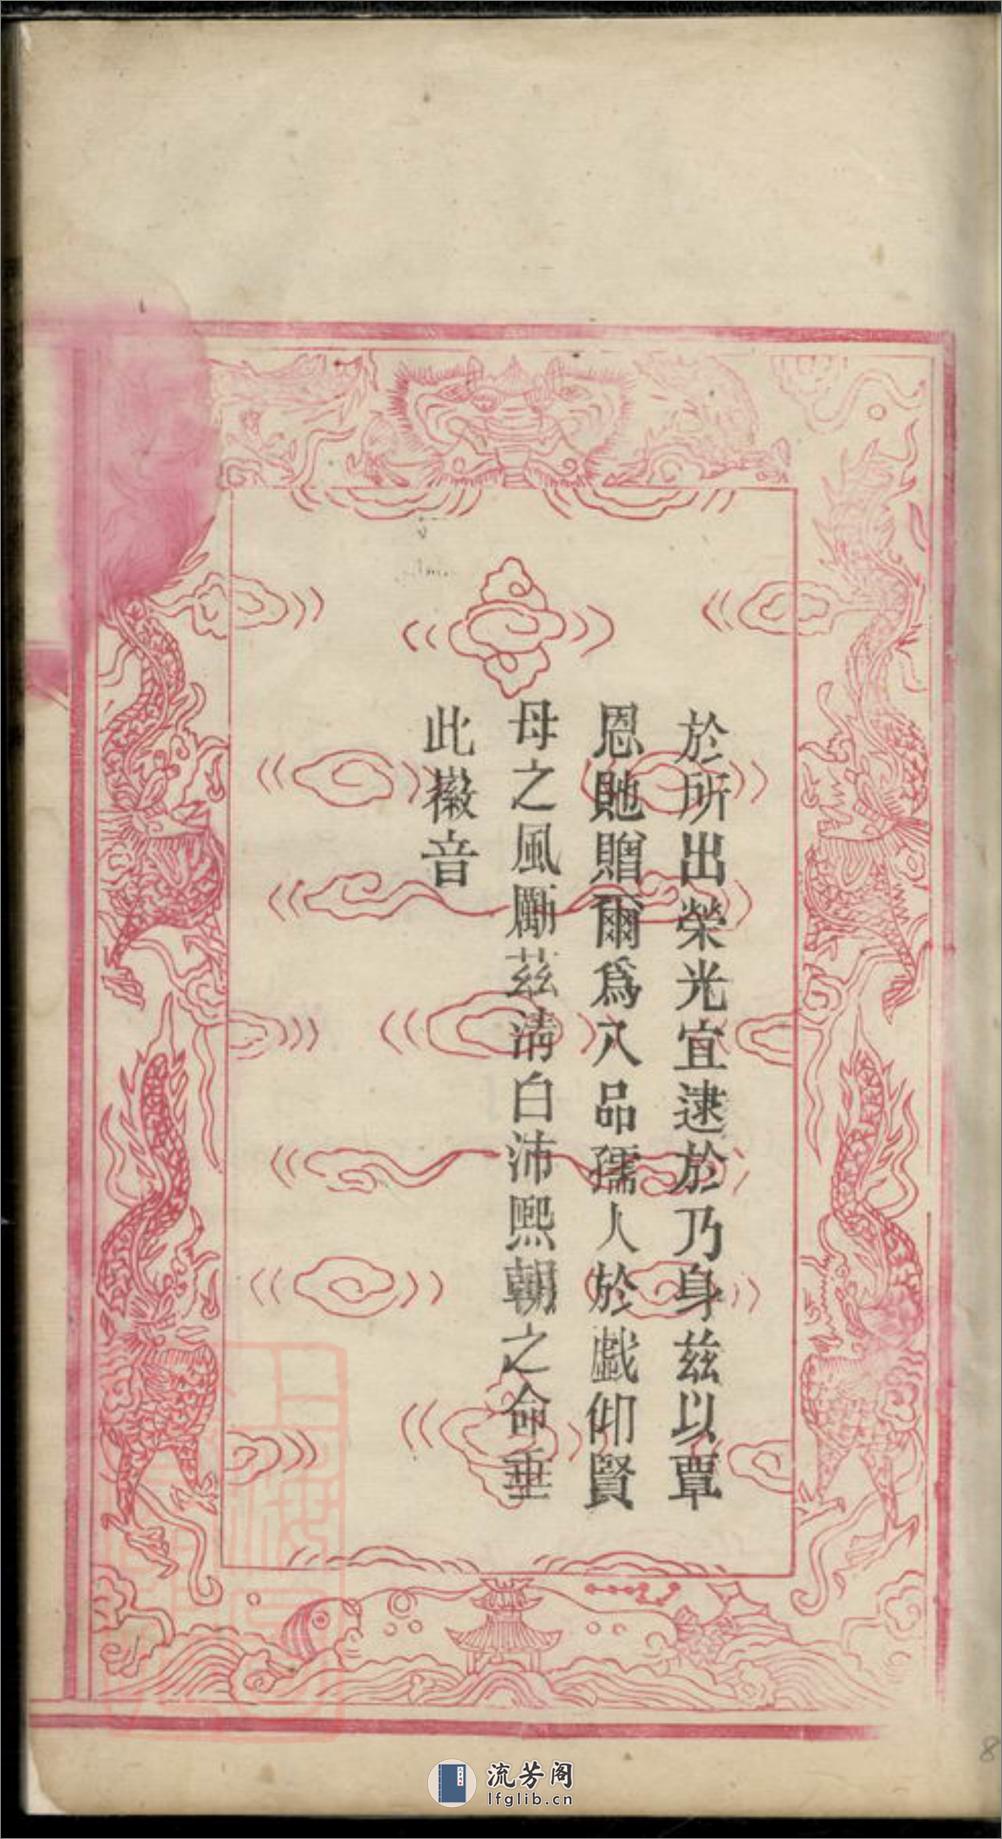 於所出榮光宜逮於乃身兹以覃
恩貤贈爾爲八品孺人於戯仰賢
母之風勵茲清白沛熙朝之命垂
此徽音
流芳阁
lfglib.cn
8